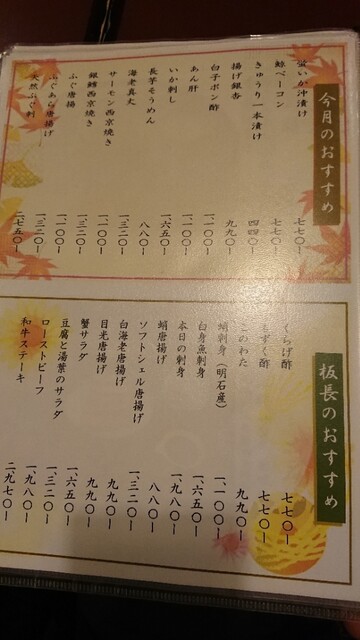 今月のおすすめ
蛍いか沖漬け 七七〇ー
鯨ベーコン 七七〇ー
きゅうり一本漬け 四四〇ー
揚げ銀杏 九九〇ー
白子ポン酢 一、一〇〇ー
あん肝 一、一〇〇ー
いか刺し 一、六五〇ー
長芋そうめん 八八〇ー
海老真丈 一、三二〇ー
サーモン西京焼き 一、一〇〇ー
銀鱈西京焼き 一、三二〇ー
ふぐ唐揚 一、一〇〇ー
ふぐあら唐揚げ 一、三二〇ー
天然ふぐ刺 二、七五〇ー
板長のおすすめ
くらげ酢 七七〇ー
もずく酢 七七〇ー
このわた 九九〇ー
蛸刺身(明石産) 一、一〇〇ー
白身魚刺身 一、六五〇ー
本日の刺身 一、九八〇ー
蛸唐揚げ 八八〇ー
ソフトシェル唐揚げ 一、三二〇ー
白海老唐揚げ 九九〇ー
目光唐揚げ 九九〇ー
蟹サラダ 一、六五〇ー
豆腐と湯葉のサラダ 一、三二〇ー
ローストビーフ 一、九八〇ー
和牛ステーキ 二、九七〇ー